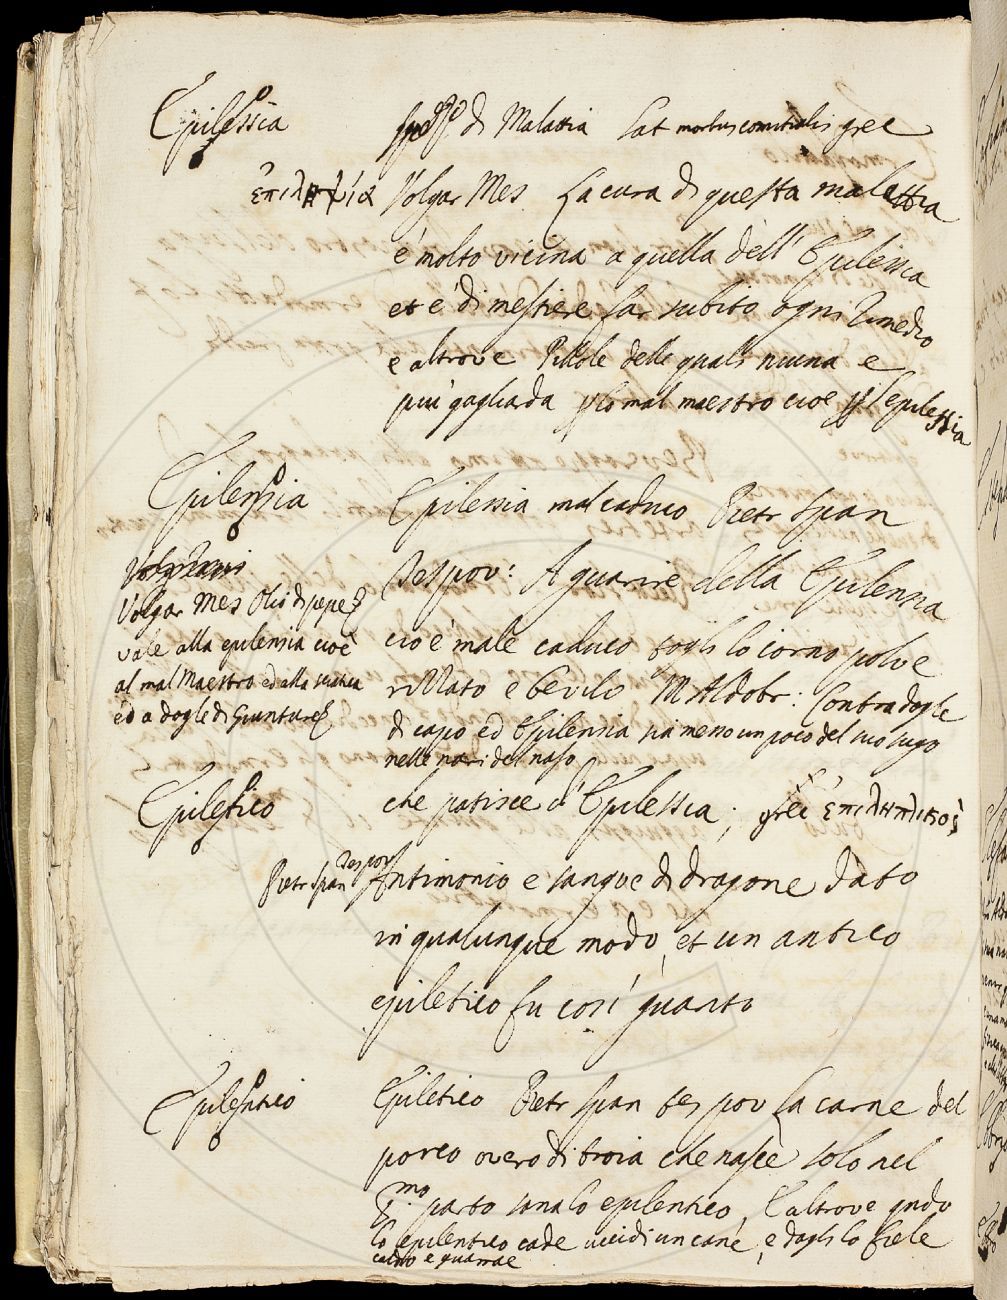 Epilessia
spezie di Malattia Lat morbus comitialis grec
ἐπιληψία Volgar Mes. La cura di questa malattia
è molto vicina a quella dell' Epilessia
et è di mestiere far subito ogni rimedio
e altrove Pillole delle quali niuna e
più gagliarda mal maestro cioè epilessia
Epilensia
Epilensia mal caduco Pietr Span
Tes pov: A guarire della Epilensia
cio è male caduco togli lo corno polve
rizzato e bevilo M Aldobr: Contra dogle
di capo ed Epilensia sia messo un poco del suo sugo
nelle nari del naso
Volgar Mes Olio di pepe
vale alla epilensia cioè
al mal Maestro ed alla sciatica
ed a dogle di Giunture
Epiletico
che patisce d' Epilessia; grec ἐπιληπτικός
Pietr Span Tes pov Antimonio e sangue di dragone dato
in qualunque modo, et un antico
epiletico fu così guarito
Epilentico
Epiletico Pietr Span Tes pov La carne del
porco overo di troia che nasce solo nel
pmo parto sana lo epilentico, E altrove qndo
lo epilentico cade uccidi un cane, e dagli lo fiele
caldo e guarrae